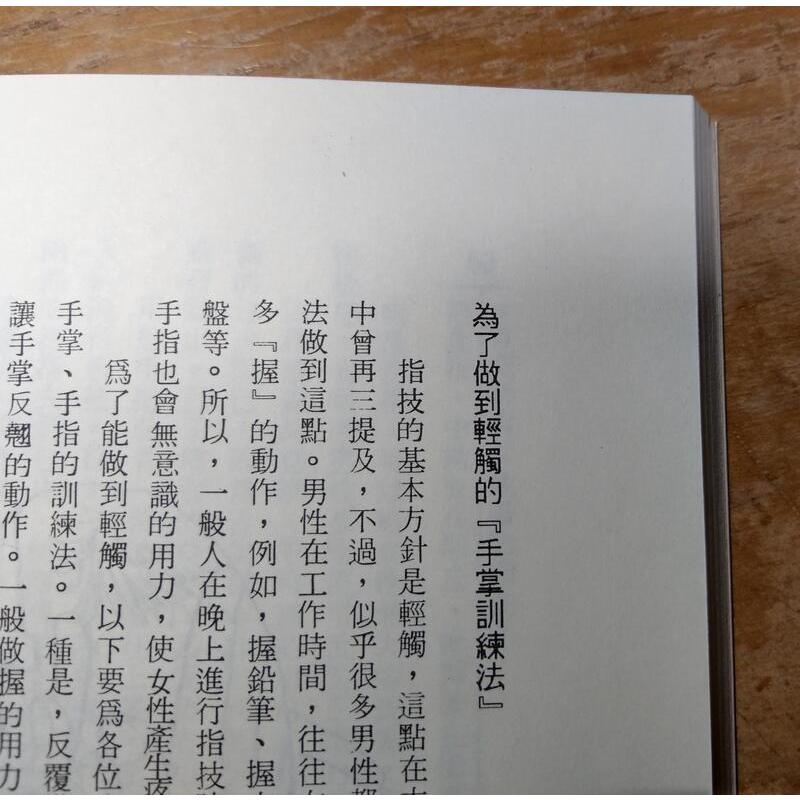 為了做到輕觸的『手掌訓練法』
指技的基本方針是輕觸，這點在
中曾再三提及，不過，似乎很多男性都
法做到這點。男性在工作時間，往往
多『握』的動作，例如，握鉛筆、握
盤等。所以，一般人在晚上進行指技
手指也會無意識的用力，使女性產生疼
爲了能做到輕觸，以下要爲各位
手掌、手指的訓練法。一種是，反覆
讓手掌反翹的動作。一般做握的用力